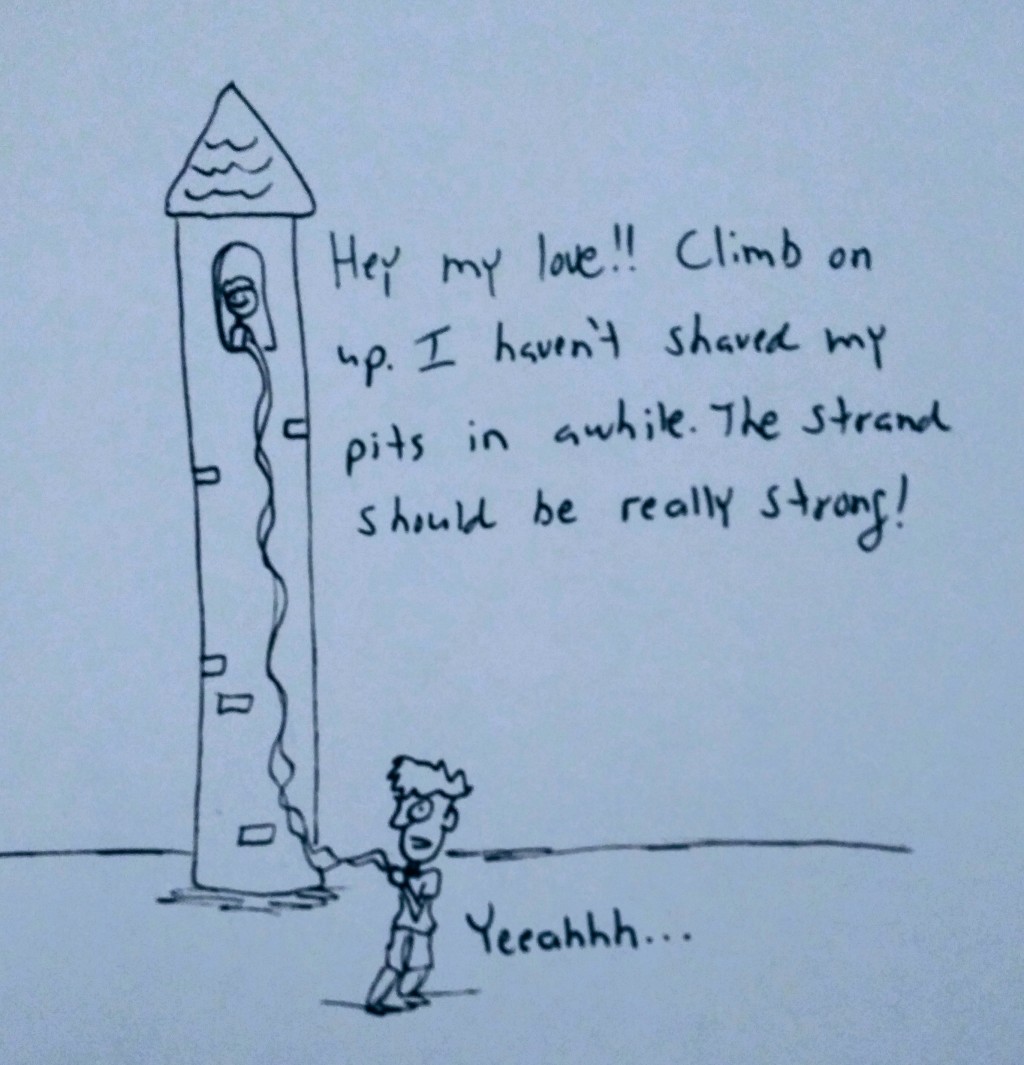 Hey my love!! Climb on
up. I haven't shaved my
pits in awhile. The strand
should be really strong!
Yeeahhh...